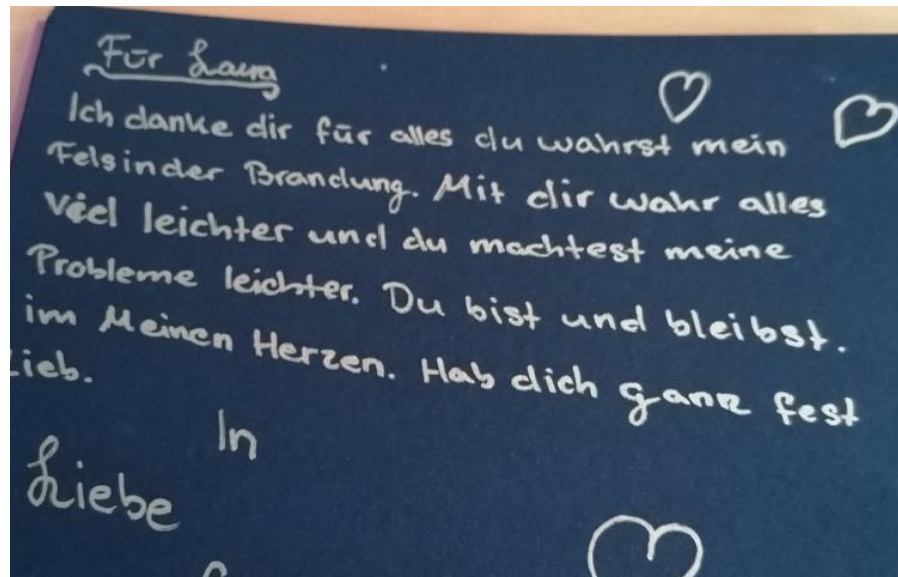 Für Laura
Ich danke dir für alles du wahrst mein
Fels in der Brandung. Mit dir wahr alles
Viel leichter und du machtest meine
Probleme leichter. Du bist und bleibst.
im Meinen Herzen. Hab dich ganz fest
Lieb.
In
Liebe